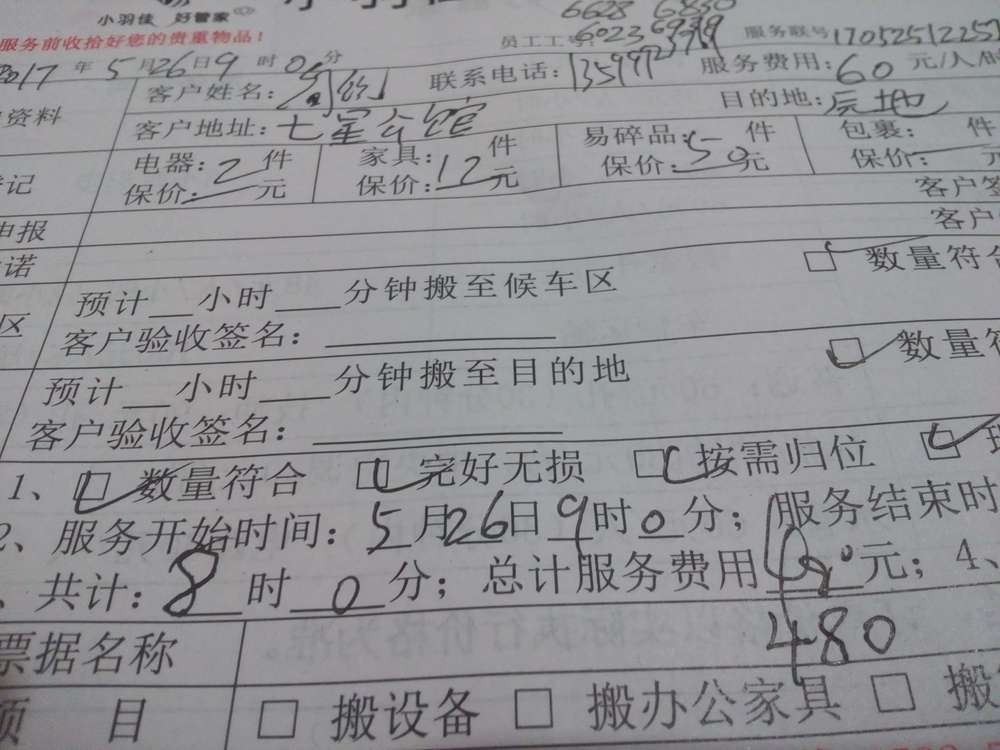 小羽佳 好管家
6628 6850
服务前收拾好您的贵重物品！ 员工工号: 6023 服务联号 170525122
2017年5月26日9时0分 联系电话: 服务费用:60元/人/时
客户姓名:
资料 客户地址:七星公馆 目的地:
电器:2件 家具: 件 易碎品: 件 包裹: 件
记 保价: 元 保价:12元 保价:50元 保价: 元
客户签
申报 客户
诺
预计__小时___分钟搬至候车区 □ 数量符合
区 客户验收签名:
预计__小时___分钟搬至目的地 □ 数量符
客户验收签名:
1、□数量符合 □完好无损 □按需归位 □
2、服务开始时间:5月26日9时0分; 服务结束时
、共计:8时0分; 总计服务费用 元; 4、
480
票据名称
项 目 □ 搬设备 □ 搬办公家具 □ 搬